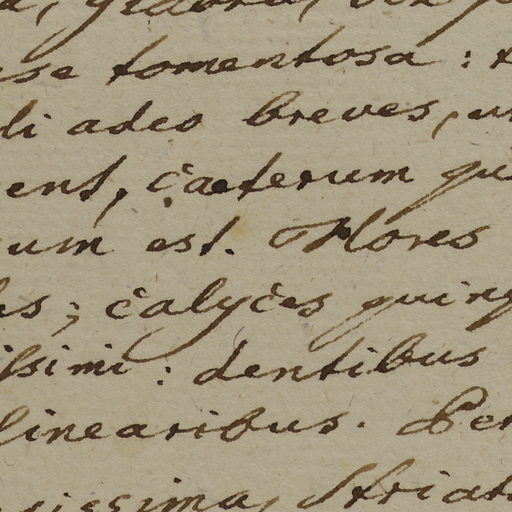 glabra,
se tomentosa :
li adeo breves, u
ent, cæterum qu
um est. Flores
is; calyces quinq
issimi : dentibus
linearibus. Per
issima, striat